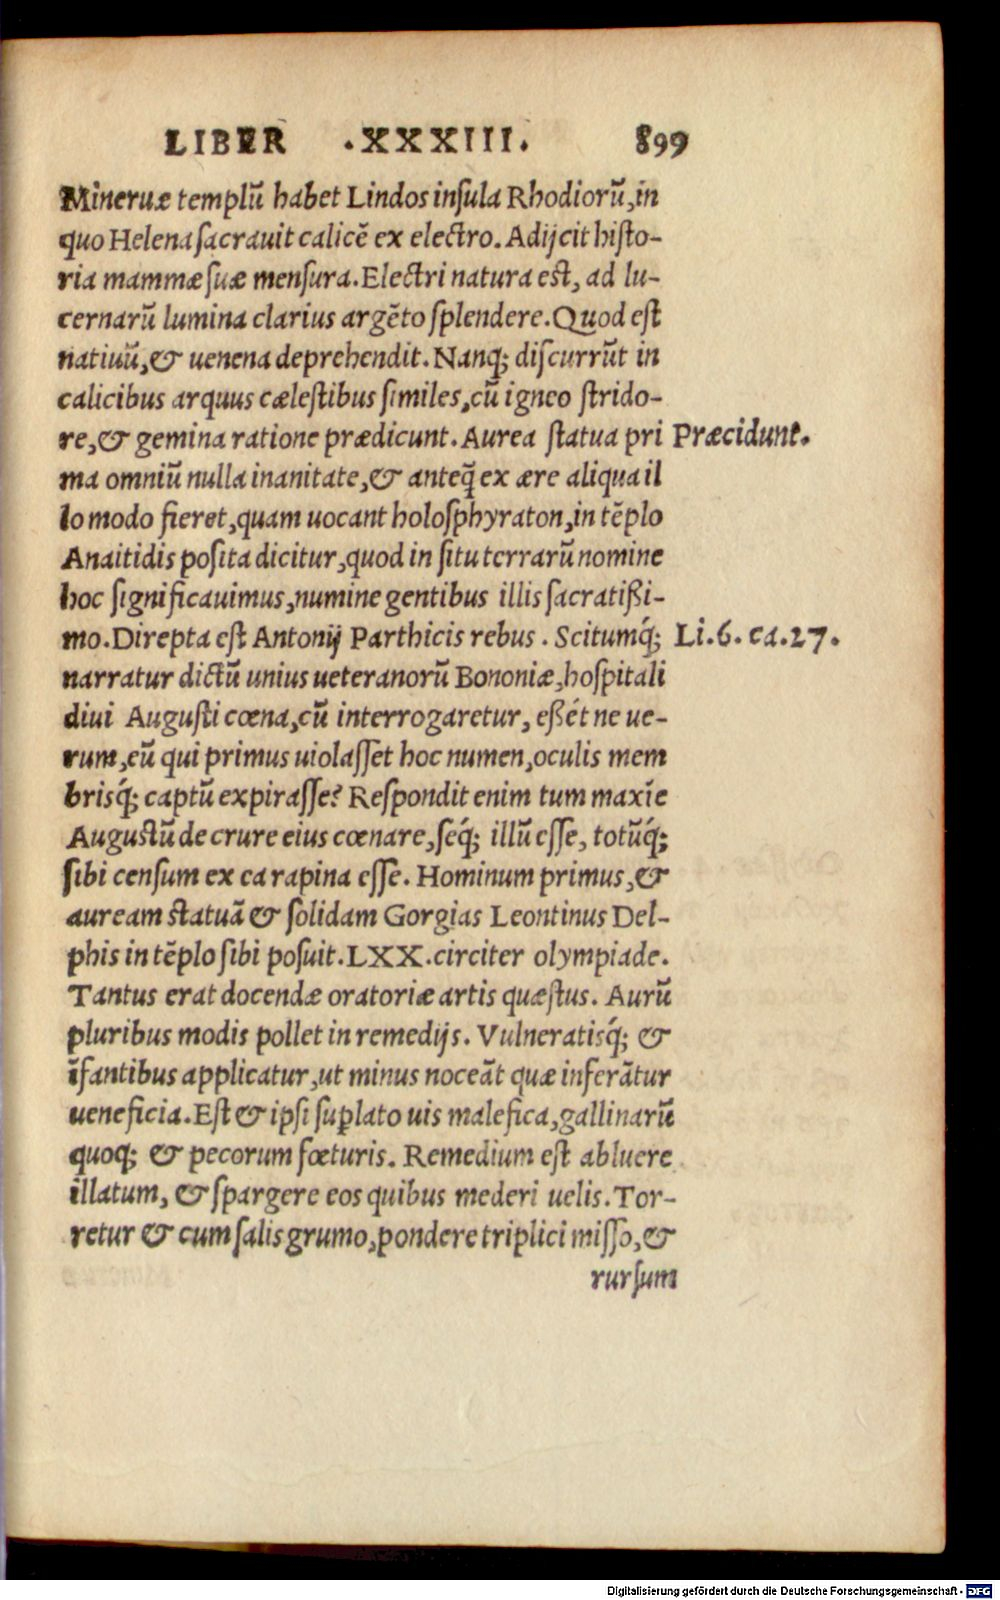 LIBER .XXXIII. 899
Mineruæ templū habet Lindos insula Rhodiorū,in
quo Helena sacrauit calicē ex electro. Adijcit histo-
ria mammæ suæ mensura. Electri natura est, ad lu-
cernarū lumina clarius argēto splendere. Quod est
natiuū,& uenena deprehendit. Nanq; discurrūt in
calicibus arquus cælestibus similes,cū igneo strido-
re,& gemina ratione prædicunt. Aurea statua pri Præcidunt.
ma omniū nulla inanitate,& anteq̄ ex ære aliqua il
lo modo fieret,quam uocant holosphyraton,in tēplo
Anaitidis posita dicitur,quod in situ terrarū nomine
hoc significauimus,numine gentibus illis sacratißi-
mo. Direpta est Antonij Parthicis rebus. Scitumq́; Li.6. ca.27.
narratur dictū unius ueteranorū Bononiæ,hospitali
diui Augusti cœna,cū interrogaretur, eßét ne ue-
rum,eū qui primus uiolasset hoc numen,oculis mem
brisq́; captū expirasse? Respondit enim tum maxīe
Augustū de crure eius cœnare,seq́; illū esse, totūq́;
sibi censum ex ea rapina esse. Hominum primus,&
auream statuā & solidam Gorgias Leontinus Del-
phis in tēplo sibi posuit. LXX. circiter olympiade.
Tantus erat docendæ oratoriæ artis quæstus. Aurū
pluribus modis pollet in remedijs. Vulneratisq́; &
īfantibus applicatur,ut minus noceāt quæ inferātur
ueneficia. Est & ipsi suꝑlato uis malefica,gallinarū
quoq; & pecorum fœturis. Remedium est abluere
illatum, & spargere eos quibus mederi uelis. Tor-
retur & cum salis grumo,pondere triplici misso,&
rursum
Digitalisierung gefördert durch die Deutsche Forschungsgemeinschaft - DFG